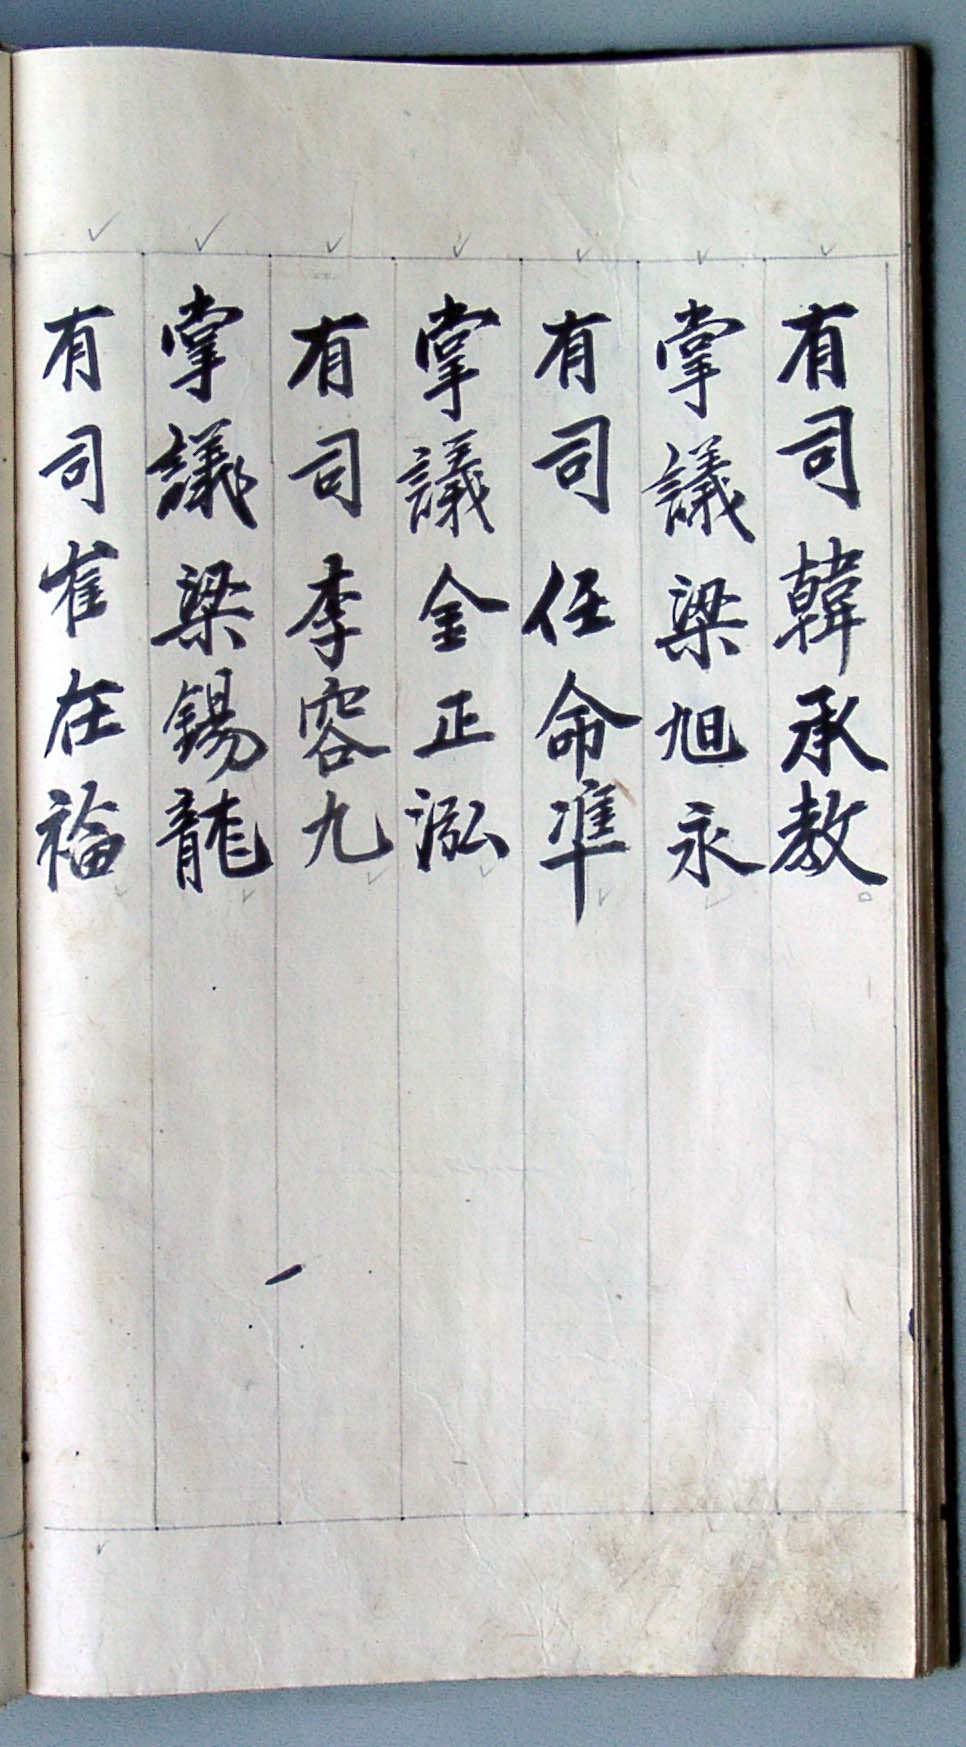 有司 韓承教
掌議 梁旭永
有司 任命準
掌議 金正泓
有司 李容九
掌議 梁錫龍
有司 崔在福